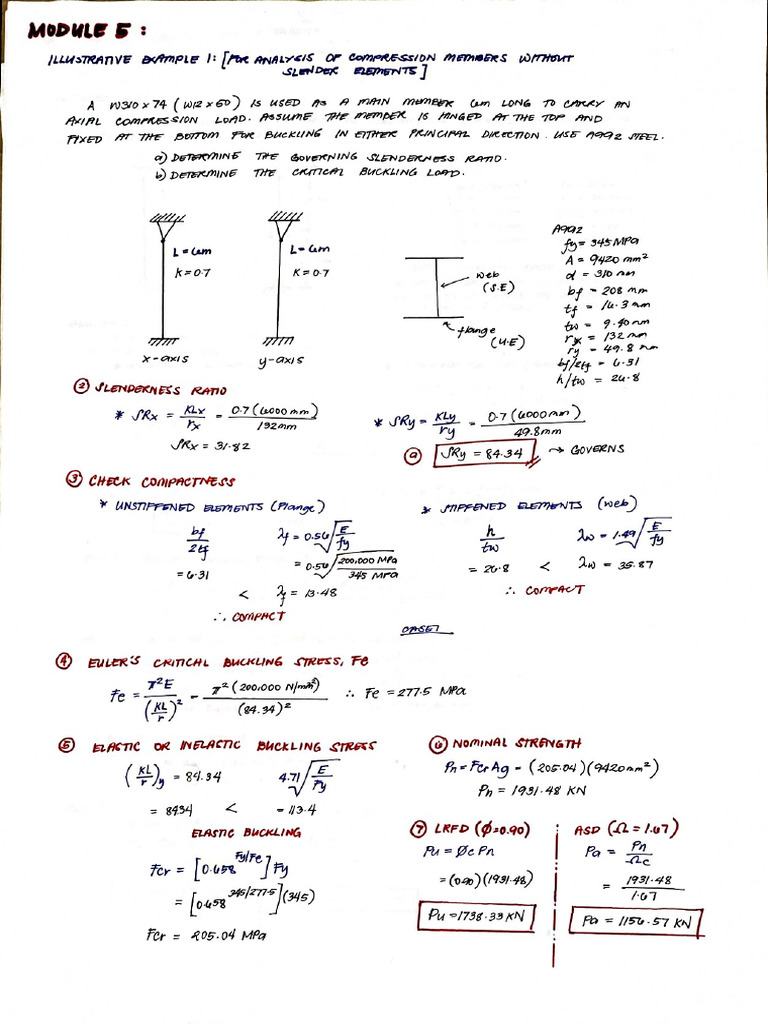 MODULE 5:
ILLUSTRATIVE EXAMPLE 1: [FOR ANALYSIS OF COMPRESSION MEMBERS WITHOUT
SLENDER ELEMENTS]
A W310x74 (W12x50) IS USED AS A MAIN MEMBER 6m LONG TO CARRY AN
AXIAL COMPRESSION LOAD. ASSUME THE MEMBER IS HINGED AT THE TOP AND
FIXED AT THE BOTTOM FOR BUCKLING IN EITHER PRINCIPAL DIRECTION. USE A992 STEEL.
a) DETERMINE THE GOVERNING SLENDERNESS RATIO.
b) DETERMINE THE CRITICAL BUCKLING LOAD.
L=6m
K=0.7
x-axis
L=6m
K=0.7
y-axis
web
(S.E)
flange
(U.E)
A992
fy = 345 MPa
A = 9420 mm²
d = 310 mm
bf = 208 mm
tf = 16.3 mm
tw = 9.40 mm
rx = 132 mm
ry = 49.8 mm
bf/2tf = 6.31
h/tw = 26.8
② SLENDERNESS RATIO
* SRx = KLx/rx = 0.7(6000mm)/132mm
SRx = 31.82
* SRy = KLy/ry = 0.7(6000mm)/49.8mm
ⓐ SRy = 84.34 → GOVERNS
③ CHECK COMPACTNESS
* UNSTIFFENED ELEMENTS (Flange)
bf/2tf λf = 0.56√E/fy
= 0.56√200,000 MPa/345 MPa
= 6.31 < λf = 13.48
∴ COMPACT
* STIFFENED ELEMENTS (web)
h/tw λw = 1.49√E/fy
= 26.8 < λw = 35.87
∴ COMPACT
CASE1
④ EULER'S CRITICAL BUCKLING STRESS, Fe
Fe = π²E/(KL/r)² = π²(200,000 N/mm²)/(84.34)² ∴ Fe = 277.5 MPa
⑤ ELASTIC OR INELASTIC BUCKLING STRESS
(KL/r)y = 84.34 4.71√E/Fy
= 8434 < = 113.4
ELASTIC BUCKLING
Fcr = [0.658^Fy/Fe]Fy
= [0.658^345/277.5](345)
Fcr = 205.04 MPa
⑥ NOMINAL STRENGTH
Pn = FcrAg = (205.04)(9420mm²)
Pn = 1931.48 KN
⑦ LRFD (Ø=0.90)
Pu = ØcPn
= (0.90)(1931.48)
Pu = 1738.33 KN
ASD (Ω = 1.67)
Pa = Pn/Ωc
= 1931.48/1.67
Pa = 1156.57 KN